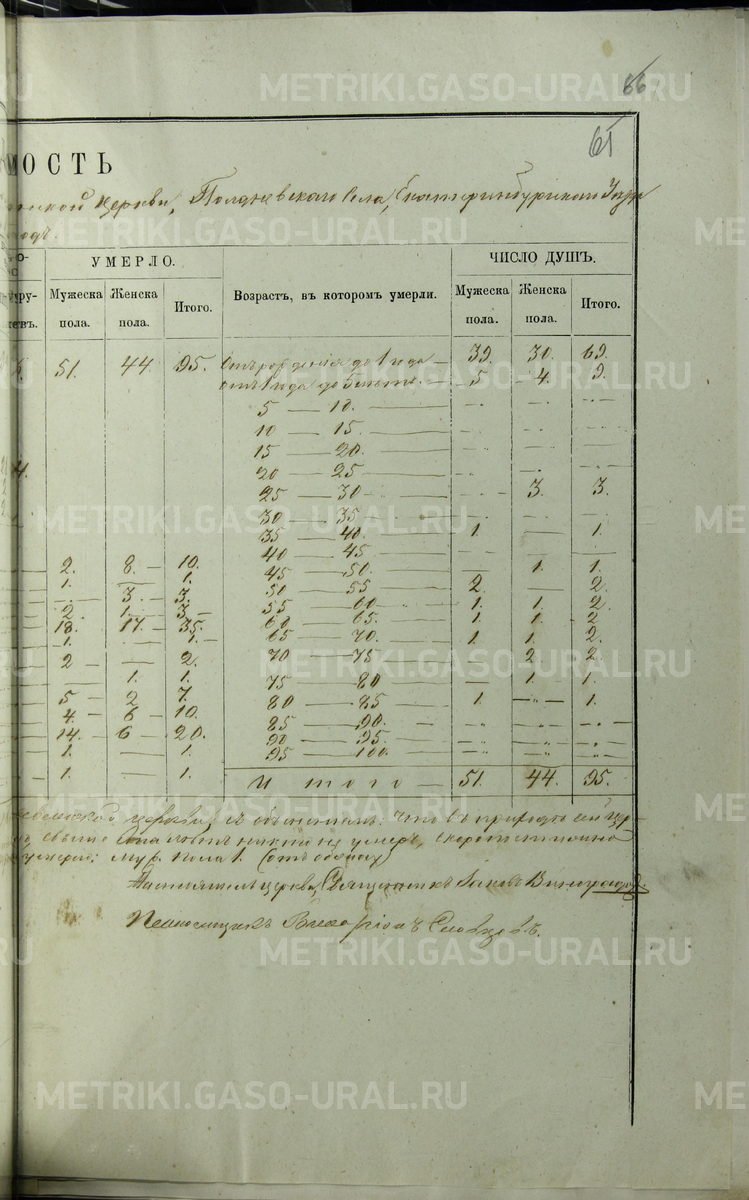 METRIKI.GASO-URAL.RU
66
61
МОСТЬ
церкви, Полдневского села, Екатеринбургского Уезда
годъ.
УМЕРЛО. ЧИСЛО ДУШЪ.
Мужеска пола. Женска пола. Итого. Возрастъ, въ которомъ умерли. Мужеска пола. Женска пола. Итого.
51. 44 95. Отъ рожденія до 1 года — 39. 30. 69.
отъ 1 года до 5 лѣтъ. — 5 — 4. 9.
5 — 10.
10 — 15
15 — 20.
20 — 25
25 — 30 3. 3.
30 — 35
35 — 40. 1. — 1.
40 — 45
2. 8 — 10. 45 — 50. — 1. 1.
1. — 1. 50 — 55 2. — 2.
3. — 3. 55 — 60 1. 1. 2.
2. 1. 3 — 60 — 65. 1. 1. 2
18. 17. — 35. 65 — 70. 1 1. 2.
1. 1. 70 — 75 — 2 2.
2 — — 2. 75 — 80 — 1. 1.
1. 1. 80 — 85 1. — 1.
5 — 2 7. 85 — 90.
4. — 6 — 10. 90 — 95.
14 — 6 — 20. 95 — 100.
1. — 1.
1. — 1. Итого — 51. 44. 95.
церкви, съ объясненіемъ: что въ приходѣ сей цер-
свыше ста лѣтъ никто не умеръ, скоропостижно
умерло: муж. пола 1. (отъ
церкви, Священникъ Іаковъ Виноградов.
Псаломщикъ Словцовъ.